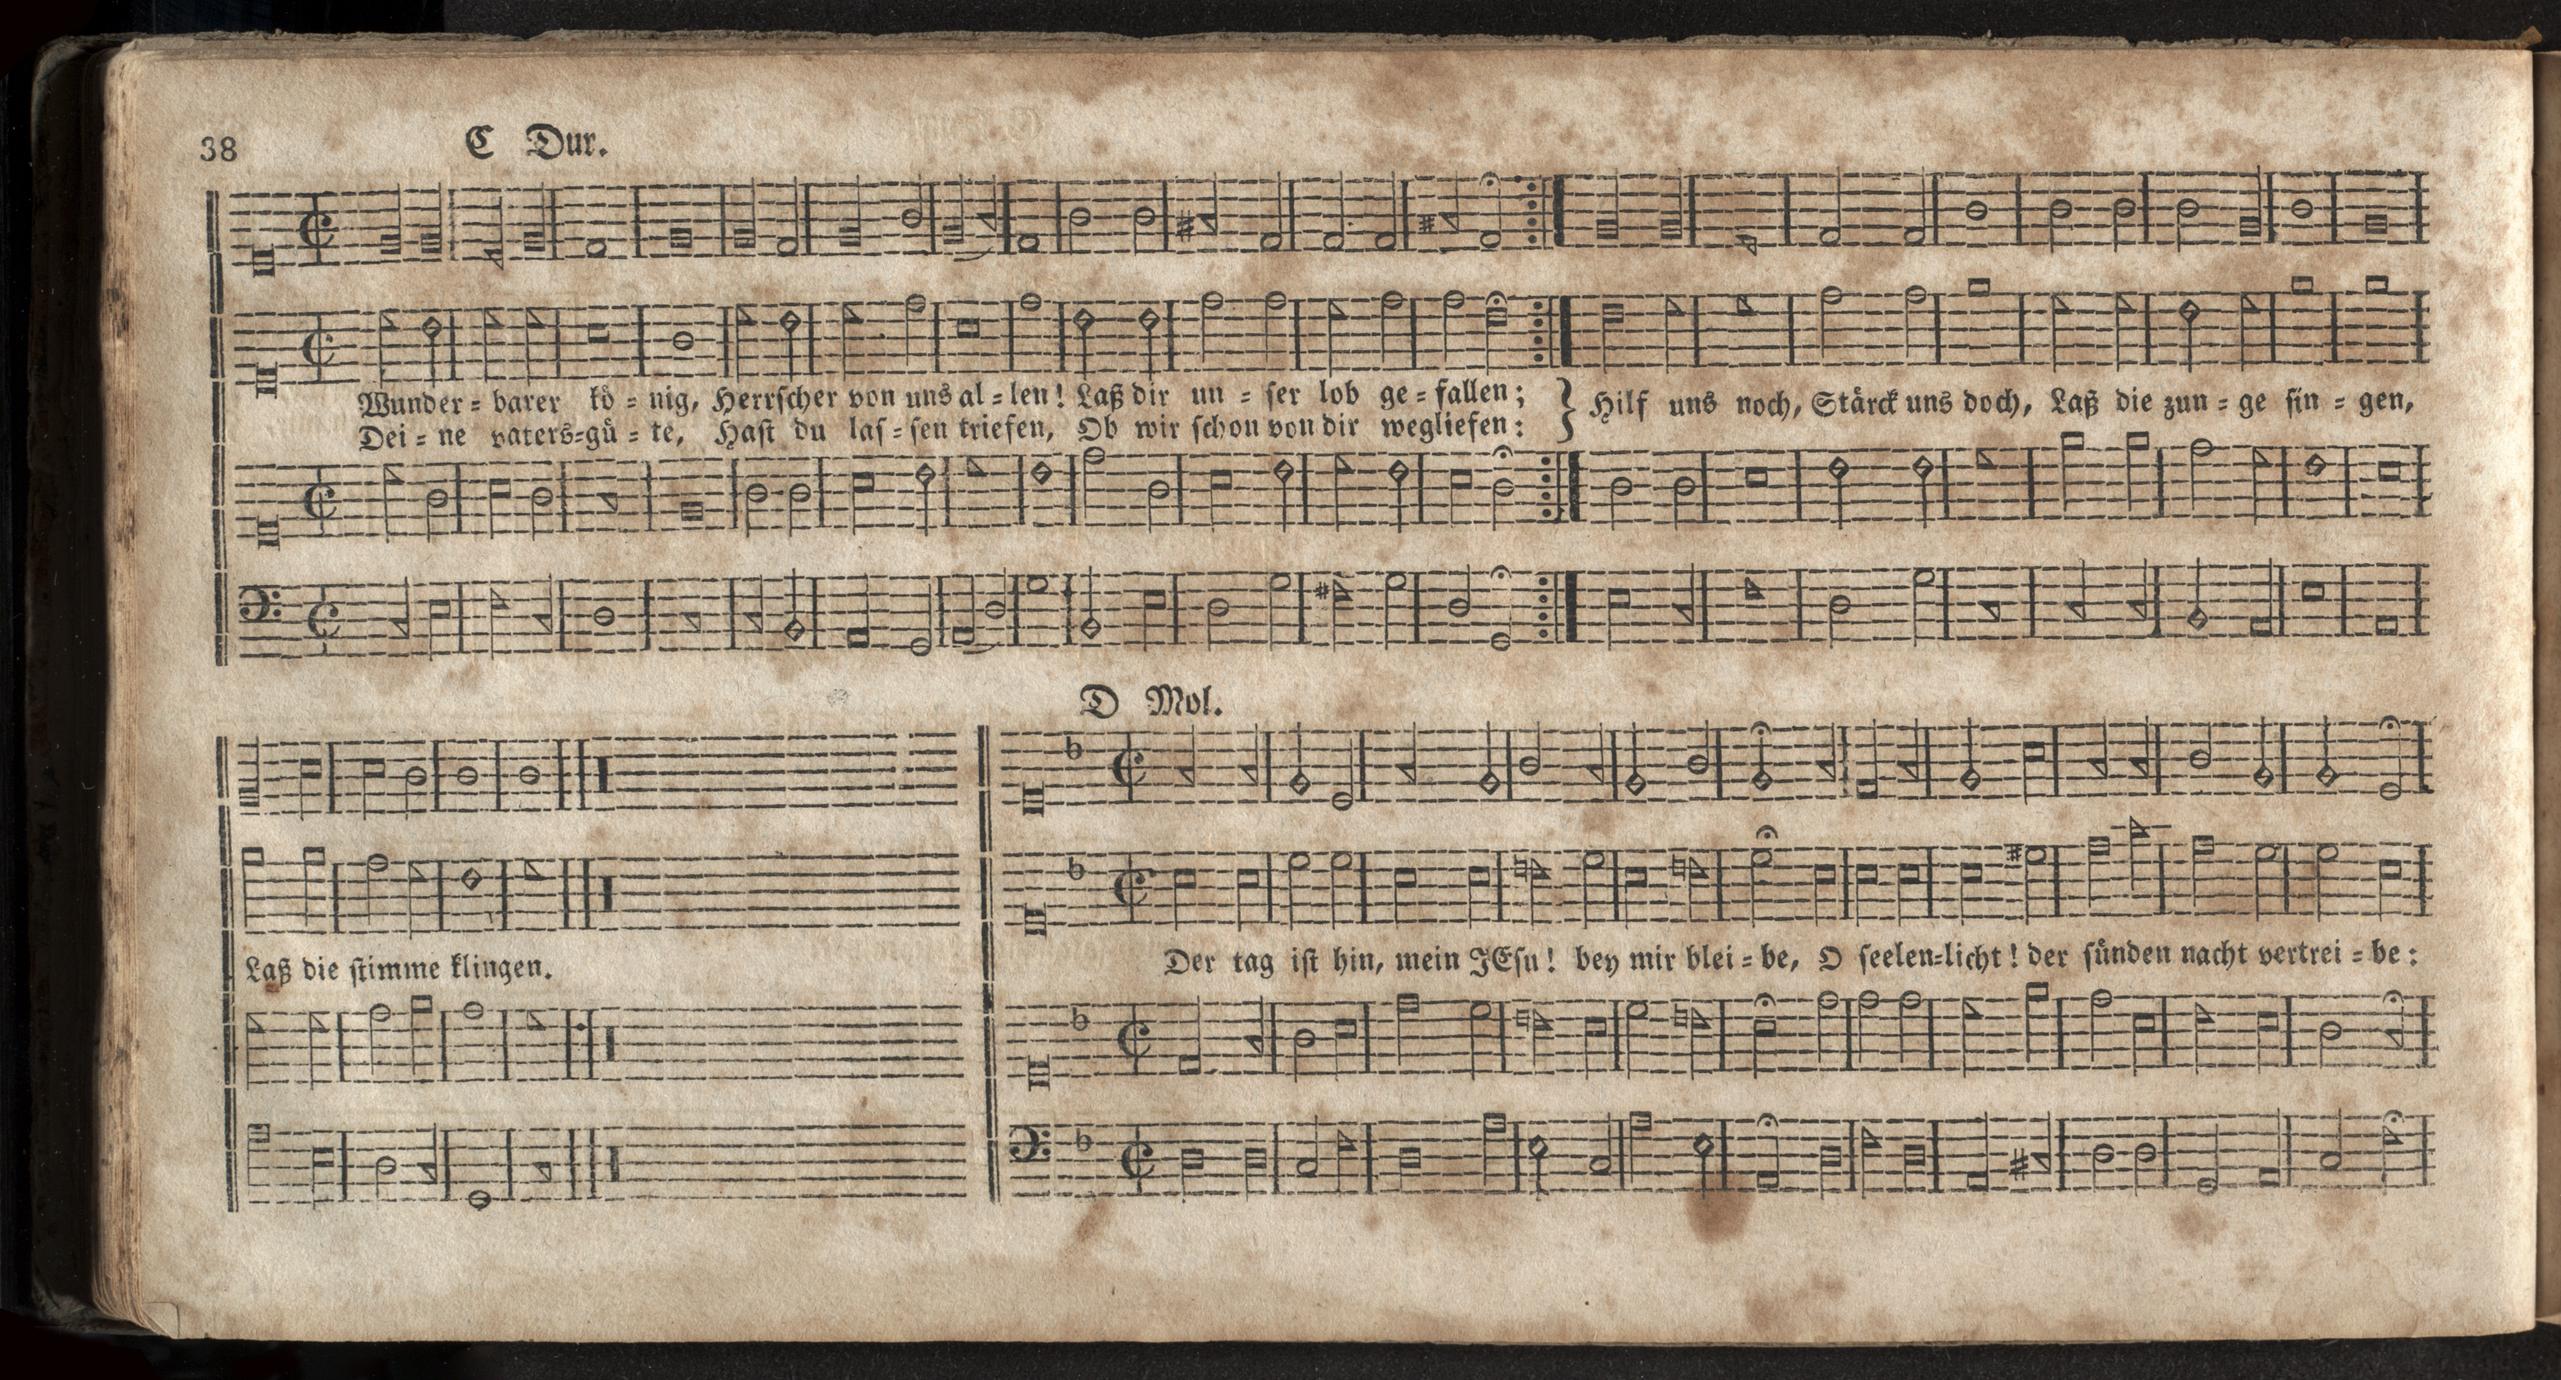 38
C Dur.
Wunder=barer kö=nig, Herrscher von uns al=len! Laß dir un=ser lob ge=fallen; } Hilf uns noch, Stärck uns doch, Laß die zun=ge sin=gen,
Dei=ne vaters=gü=te, Hast du las=sen triefen, Ob wir schon von dir wegliefen:
D Mol.
Laß die stimme klingen.
Der tag ist hin, mein JEsu! bey mir blei=be, O seelen=licht! der sünden nacht vertrei=be: